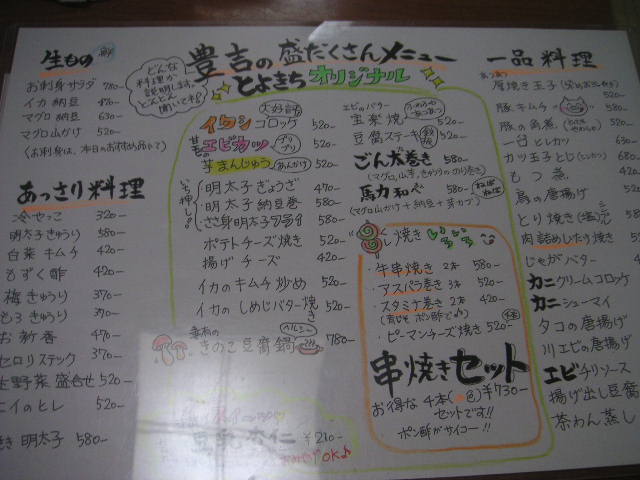 豊吉の盛だくさんメニュー
とよきちオリジナル
生もの
どんな
料理か
説明します。
どんどん
聞いてネ!
お刺身サラダ 780-
イカ納豆 470-
マグロ納豆 630-
マグロ山かけ 520-
(お刺身は、本日のおすすめ品にて)
あっさり料理
冷やっこ 320-
明太子きゅうり 580-
白菜キムチ 420-
もずく酢 420-
梅きゅうり 370-
もろきゅうり 370-
お新香 420-
セロリスティック 370-
生野菜盛合せ 520-
エイのヒレ 520-
明太子 580-
大好評
イワシコロッケ 520-
エビカツ プリプリ 520-
芋まんじゅう あんかけ 520-
いち押し!
明太子ぎょうざ 470-
明太子納豆巻 580-
ささ身明太子フライ 520-
ポテトチーズ焼き 520-
揚げチーズ 420-
イカのキムチ炒め 520-
イカのしめじバター焼き 520-
きのこ豆腐鍋 ヘルシー 780-
豆乳杏仁 ¥210-
OK♪
エビのバター
宝楽焼 520-
豆腐ステーキ 520-
ごん太巻き 580-
(マグロ、山芋、きゅうりののり巻き)
馬力和え ねばねば 580-
(マグロ山かけ+納豆+芽カブ)
くし焼きいろいろ
牛串焼き 2本 580-
アスパラ巻き 3本 520-
スタミナ巻き 2本 420-
(青じそ ポン酢で)
ピーマンチーズ焼き 520-
串焼きセット
お得な4本 ¥730-
セットです!!
ポン酢がサイコー!!
一品料理
厚焼き玉子
520-
豚キムチ 580-
豚の角煮 580-
一口ヒレカツ 520-
カツ玉子とじ(ヒレカツ) 630-
もつ煮 420-
鳥の唐揚げ
とり焼き(塩)
肉詰めしたけ焼き
じゃがバター
カニクリームコロッケ
カニシューマイ
タコの唐揚げ
川エビの唐揚げ
エビチリソース
揚げ出し豆腐
茶わん蒸し